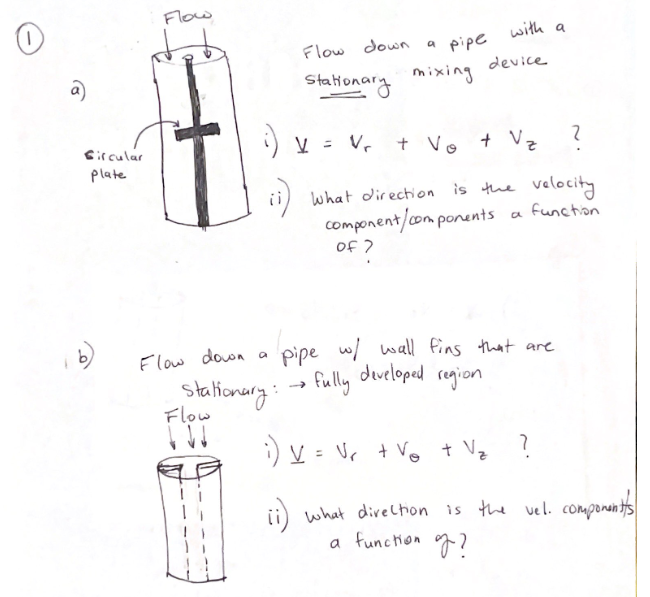 ① Flow
a)
Flow down a pipe with a
Stationary mixing device
Circular
plate
i) V = Vr + Vθ + Vz ?
ii) What direction is the velocity
component/components a function
of ?
b) Flow down a pipe w/ wall fins that are
Stationary : → fully developed region
Flow
i) V = Vr + Vθ + Vz ?
ii) what direction is the vel. component/s
a function of ?